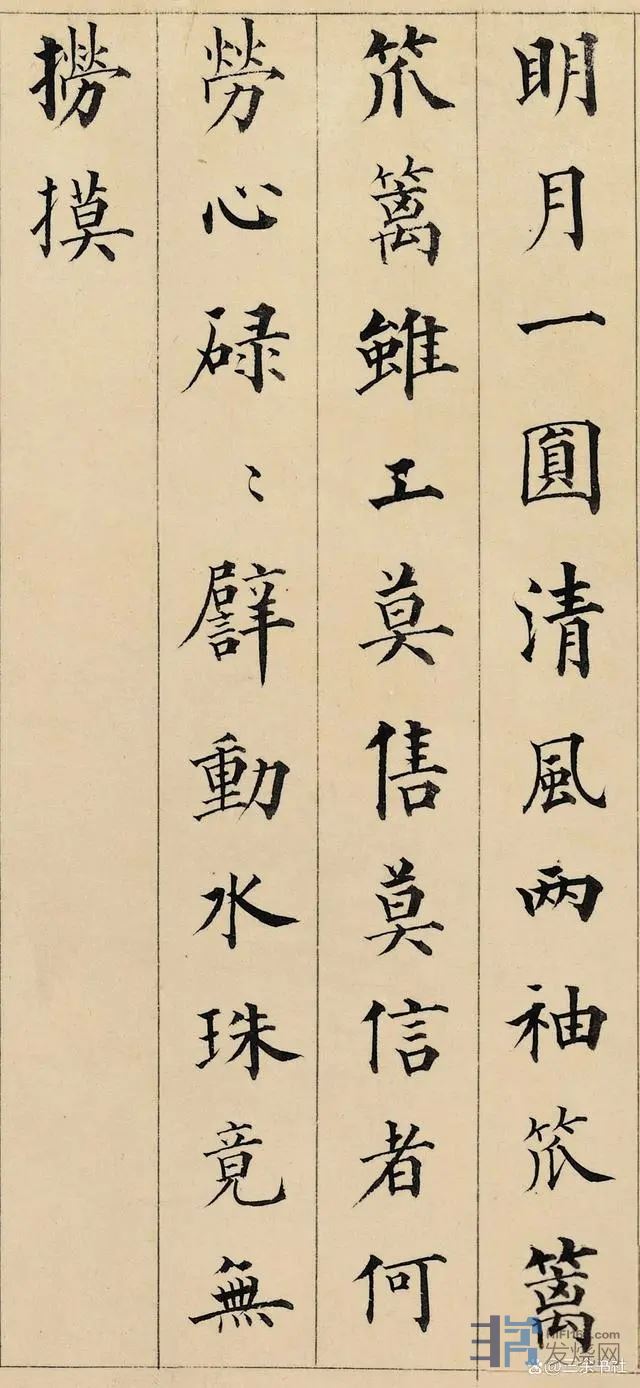 明月一圓清風两袖笊籬
笊籬雖工莫售莫信者何
勞心碌〻譬動水珠竟無
撈摸
发烧网
@三余书社